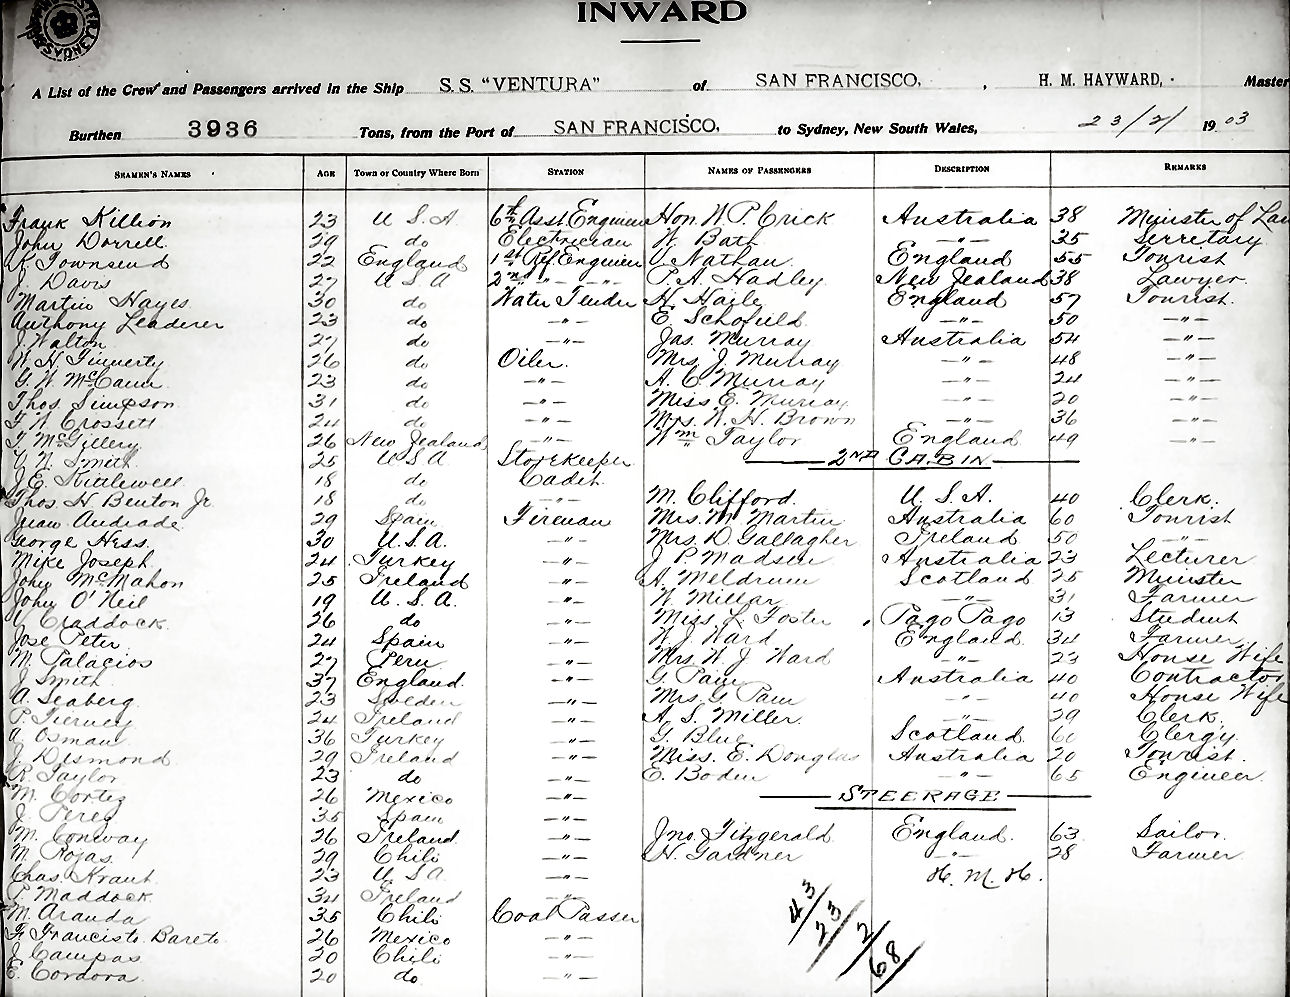 INWARD
A List of the Crew and Passengers arrived in the Ship S. S. "VENTURA" of SAN FRANCISCO, , H. M. HAYWARD, Master
Burthen 3936 Tons, from the Port of SAN FRANCISCO, to Sydney, New South Wales, 23/2/ 1903
SEAMEN'S NAMES AGE Town or Country Where Born STATION NAMES OF PASSENGERS DESCRIPTION REMARKS
Frank Killion 23 U S A 6th Asst. Engineer Hon. W. P. Crick Australia 38 Minister of Law
John Dorrell 29 do Electrician W. Bath -"- 35 Secretary
K. Townsend 22 England 1st Ref. Engineer Nathan England 55 Tourist
J. Davis 27 U S A 2nd -"- -"- P. A. Hadley New Zealand 38 Lawyer
Martin Hayes 30 do Water Tender H. Haile England 57 Tourist
Anthony Leaderer 23 do -"- E. Schofield -"- 50 -"-
J. Walton 27 do -"- Jas. Murray Australia 54 -"-
W. H. Finnerty 26 do Oiler. Mrs. J. Murray -"- 48 -"-
G. W. McCann 23 do -"- A. C. Murray -"- 24 -"-
Thos. Simpson 31 do -"- Miss E. Murray -"- 20 -"-
F. W. Crossett 24 do -"- Mrs. W. H. Brown -"- 36 -"-
T. McGillery 26 New Zealand -"- Wm Taylor England 49 -"-
N. Smith 25 U.S.A. Storekeeper 2ND CABIN
J. E. Kittlewell 18 do Cadet
Thos. H Benton Jr. 18 do -"- M. Clifford. U. S. A. 40 Clerk.
Juan Andrade 29 Spain Fireman Mrs. M. Martin Australia 60 Tourist
George Hess. 30 U.S.A. -"- Mrs. D. Gallagher Ireland 50 -"-
Mike Joseph. 24 Turkey -"- J. P. Madsen Australia 23 Lecturer
John McMahon 25 Ireland -"- A. Meldrum Scotland 25 Minister
John O'Neil 19 U. S. A. -"- W. Millar -"- 31 Farmer
Craddock. 26 do -"- Miss L. Foster Pago Pago 13 Student
Jose Peter 24 Spain -"- W. J. Ward England 34 Farmer
M. Palacios 27 Peru -"- Mrs. W. J. Ward -"- 23 House Wife
J. Smith 37 England. -"- G. Pain Australia 40 Contractor
A. Seaberg. 23 Sweden -"- Mrs. G. Pain -"- 40 House Wife
P. Tierney 24 Ireland -"- A. S. Miller. -"- 29 Clerk.
A. Osman 36 Turkey -"- G. Blue Scotland 60 Clergy.
J. Desmond 29 Ireland -"- Miss. E. Douglas Australia 20 Tourist.
R. Taylor 23 do -"- E. Boden -"- 65 Engineer
M. Cortez 26 Mexico -"- STEERAGE
J. Perez 35 Spain -"-
M. Conway 26 Ireland -"- Jno. Fitzgerald England. 63 Sailor
M. Rojas 29 Chili -"- H. Gardner -"- 28 Farmer
Chas. Kraut. 23 U S A -"- H. M. H.
P. Maddock 34 Ireland -"-
M. Aranda 35 Chili Coal Passer
F. Francisto Bareto 26 Mexico -"-
J. Campas 20 Chili -"-
E. Cordova 20 do -"-
43/23/2/68